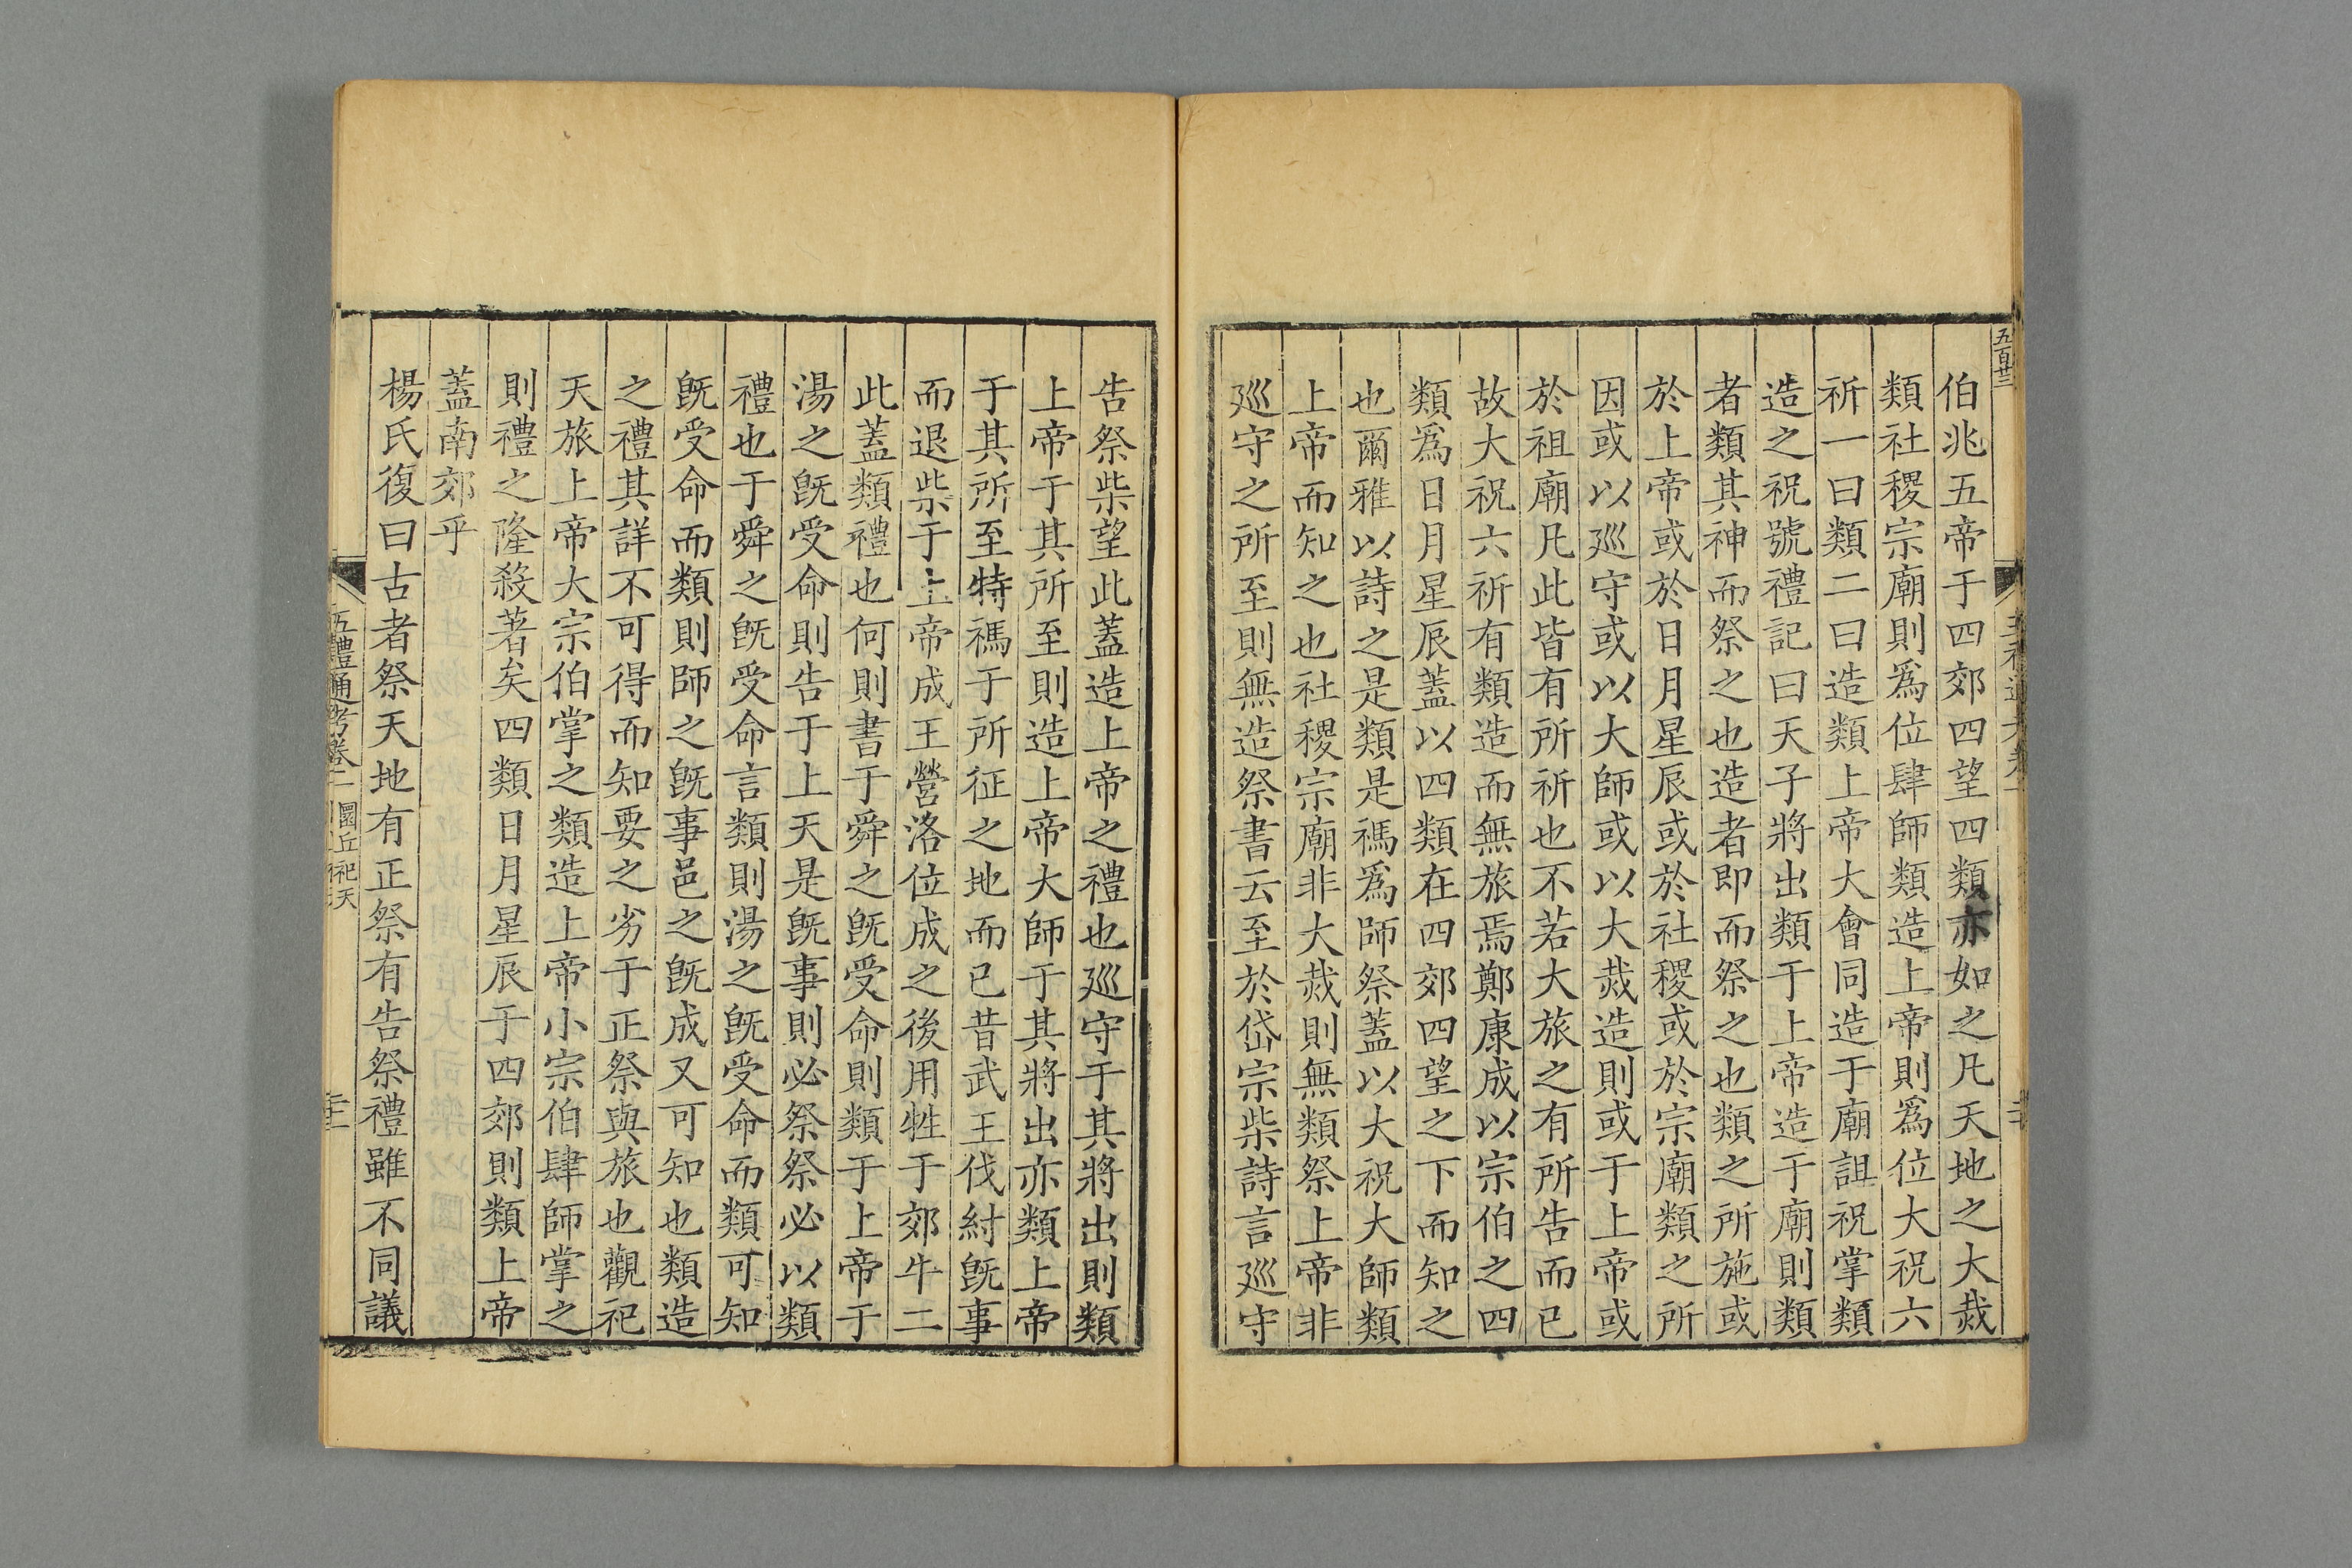 五百廿三
伯兆五帝于四郊四望四類亦如之凡天地之大烖
類社稷宗廟則爲位肆師類造上帝則爲位大祝六
祈一曰類二曰造類上帝大會同造于廟詛祝掌類
造之祝號禮記曰天子將出類于上帝造于廟則類
者類其神而祭之也造者即而祭之也類之所施或
於上帝或於日月星辰或於社稷或於宗廟類之所
因或以廵守或以大師或以大烖造則或于上帝或
於祖廟凡此皆有所祈也不若大旅之有所告而已
故大祝六祈有類造而無旅焉鄭康成以宗伯之四
類爲日月星辰蓋以四類在四郊四望之下而知之
也爾雅以詩之是類是禡爲師祭蓋以大祝大師類
上帝而知之也社稷宗廟非大烖則無類祭上帝非
廵守之所至則無造祭書云至於岱宗柴詩言廵守
告祭柴望此蓋造上帝之禮也廵守于其將出則類
上帝于其所至則造上帝大師于其將出亦類上帝
于其所至特禡于所征之地而已昔武王伐紂旣事
而退柴于上帝成王營洛位成之後用牲于郊牛二
此蓋類禮也何則書于舜之旣受命則類于上帝于
湯之旣受命則告于上天是旣事則必祭祭必以類
禮也于舜之旣受命言類則湯之旣受命而類可知
旣受命而類則師之旣事邑之旣成又可知也類造
之禮其詳不可得而知要之劣于正祭與旅也觀祀
天旅上帝大宗伯掌之類造上帝小宗伯肆師掌之
則禮之隆殺著矣四類日月星辰于四郊則類上帝
蓋南郊乎
楊氏復曰古者祭天地有正祭有告祭禮雖不同議
五禮通考卷二 圜丘祀天